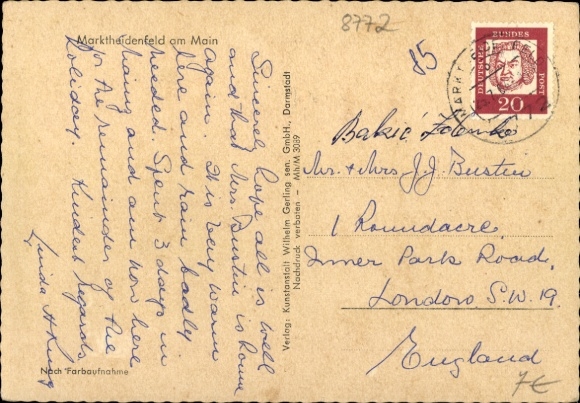 Marktheidenfeld am Main
Sincerely hope all is well
and that Mrs. Bustin is home
again. It is very warm
here and rain badly
needed. Spent 3 days in
and am now here
for the remainder of the
holiday. Kindest Regards
Nach Farbaufnahme
Verlag: Kunstanstalt Wilhelm Gerling sen. GmbH., Darmstadt
Nachdruck verboten — Mh/M 3089
8772
85
DEUTSCHE BUNDESPOST
20
Mr. & Mrs. J.J. Bustin
1 Roundacre,
Inner Park Road,
London S.W.19.
England
7€